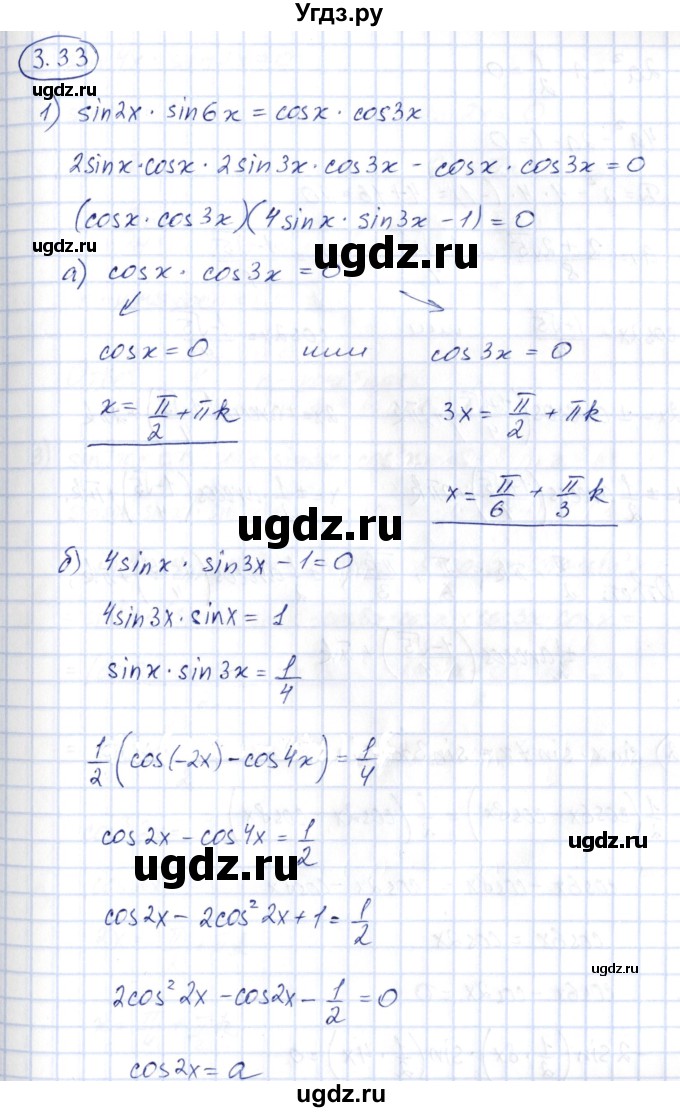 Угдз.ру
3.33
ugdz.ru ugdz.ru
1) sin2x · sin6x = cosx · cos3x
2sinx·cosx · 2sin3x·cos3x - cosx · cos3x = 0
(cosx · cos3x)(4sinx · sin3x - 1) = 0
ugdz.ru ugdz.ru
ugdz.ru
а) cosx · cos3x = 0
cosx = 0 или cos3x = 0
x = π/2 + πk 3x = π/2 + πk
x = π/6 + π/3 k
ugdz.ru
б) 4sinx · sin3x - 1 = 0
4sin3x · sinx = 1
sinx · sin3x = 1/4
1/2 (cos(-2x) - cos4x) = 1/4
cos2x - cos4x = 1/2
ugdz.ru
ugdz.ru
cos2x - 2cos² 2x + 1 = 1/2
ugdz.ru
2cos² 2x - cos2x - 1/2 = 0
cos2x = a
ugdz.ru